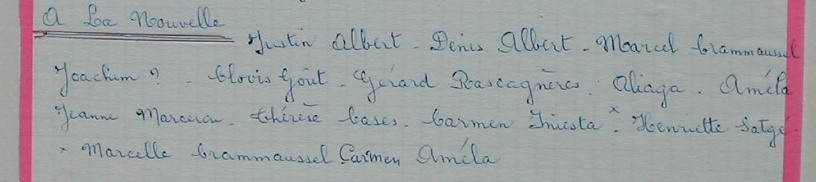 A La Nouvelle
Justin Albert - Denis Albert - Marcel Crammaussel
Joachim ? - Clovis Goût - Gérard Rascagnères. Aliaga. Améla
Jeanne Marcerou. Thérèse Cases. Carmen Iniesta x. Henriette Satgé
x Marcelle Crammaussel Carmen Améla